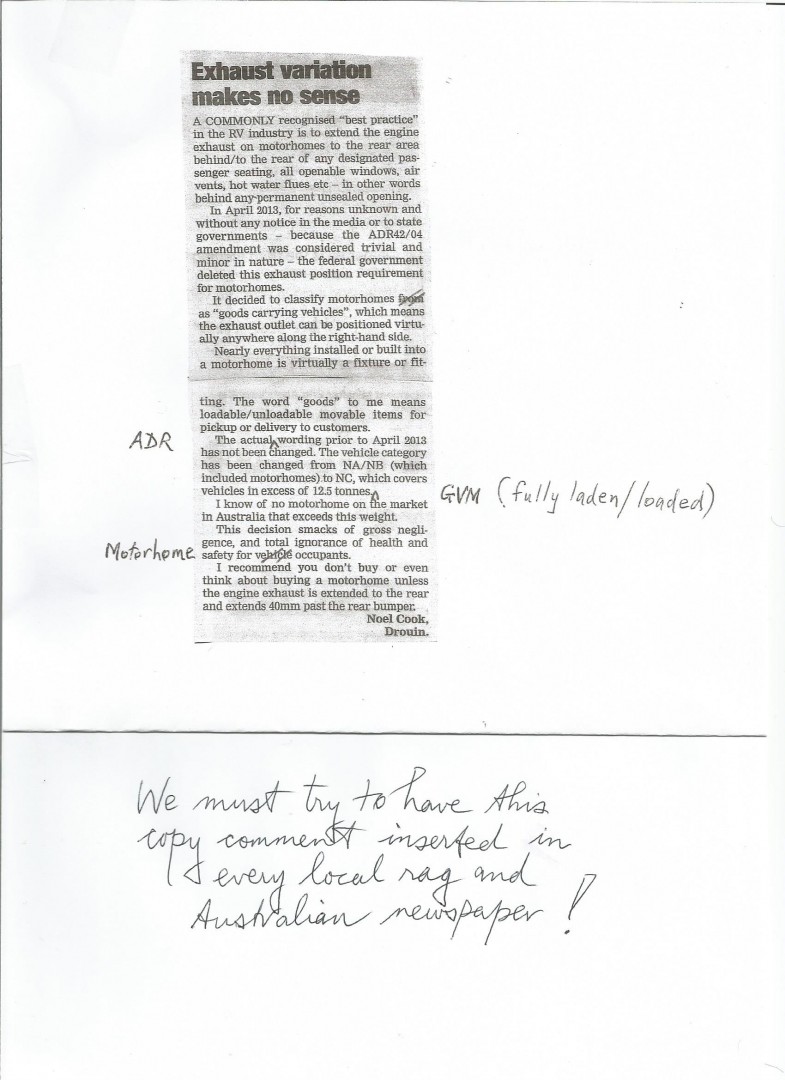 Exhaust variation
makes no sense
A COMMONLY recognised “best practice”
in the RV industry is to extend the engine
exhaust on motorhomes to the rear area
behind/to the rear of any designated pas-
senger seating, all openable windows, air
vents, hot water flues etc – in other words
behind any permanent unsealed opening.
In April 2013, for reasons unknown and
without any notice in the media or to state
governments – because the ADR42/04
amendment was considered trivial and
minor in nature – the federal government
deleted this exhaust position requirement
for motorhomes.
It decided to classify motorhomes from
as “goods carrying vehicles”, which means
the exhaust outlet can be positioned virtu-
ally anywhere along the right-hand side.
Nearly everything installed or built into
a motorhome is virtually a fixture or fit-
ting. The word “goods” to me means
loadable/unloadable movable items for
pickup or delivery to customers.
ADR
The actual wording prior to April 2013
has not been changed. The vehicle category
has been changed from NA/NB (which
included motorhomes) to NC, which covers
vehicles in excess of 12.5 tonnes.
GVM (fully laden/loaded)
I know of no motorhome on the market
in Australia that exceeds this weight.
This decision smacks of gross negli-
gence, and total ignorance of health and
Motorhome
safety for vehicle occupants.
I recommend you don’t buy or even
think about buying a motorhome unless
the engine exhaust is extended to the rear
and extends 40mm past the rear bumper.
Noel Cook,
Drouin.
We must try to have this
copy comment inserted in
every local rag and
Australian newspaper!